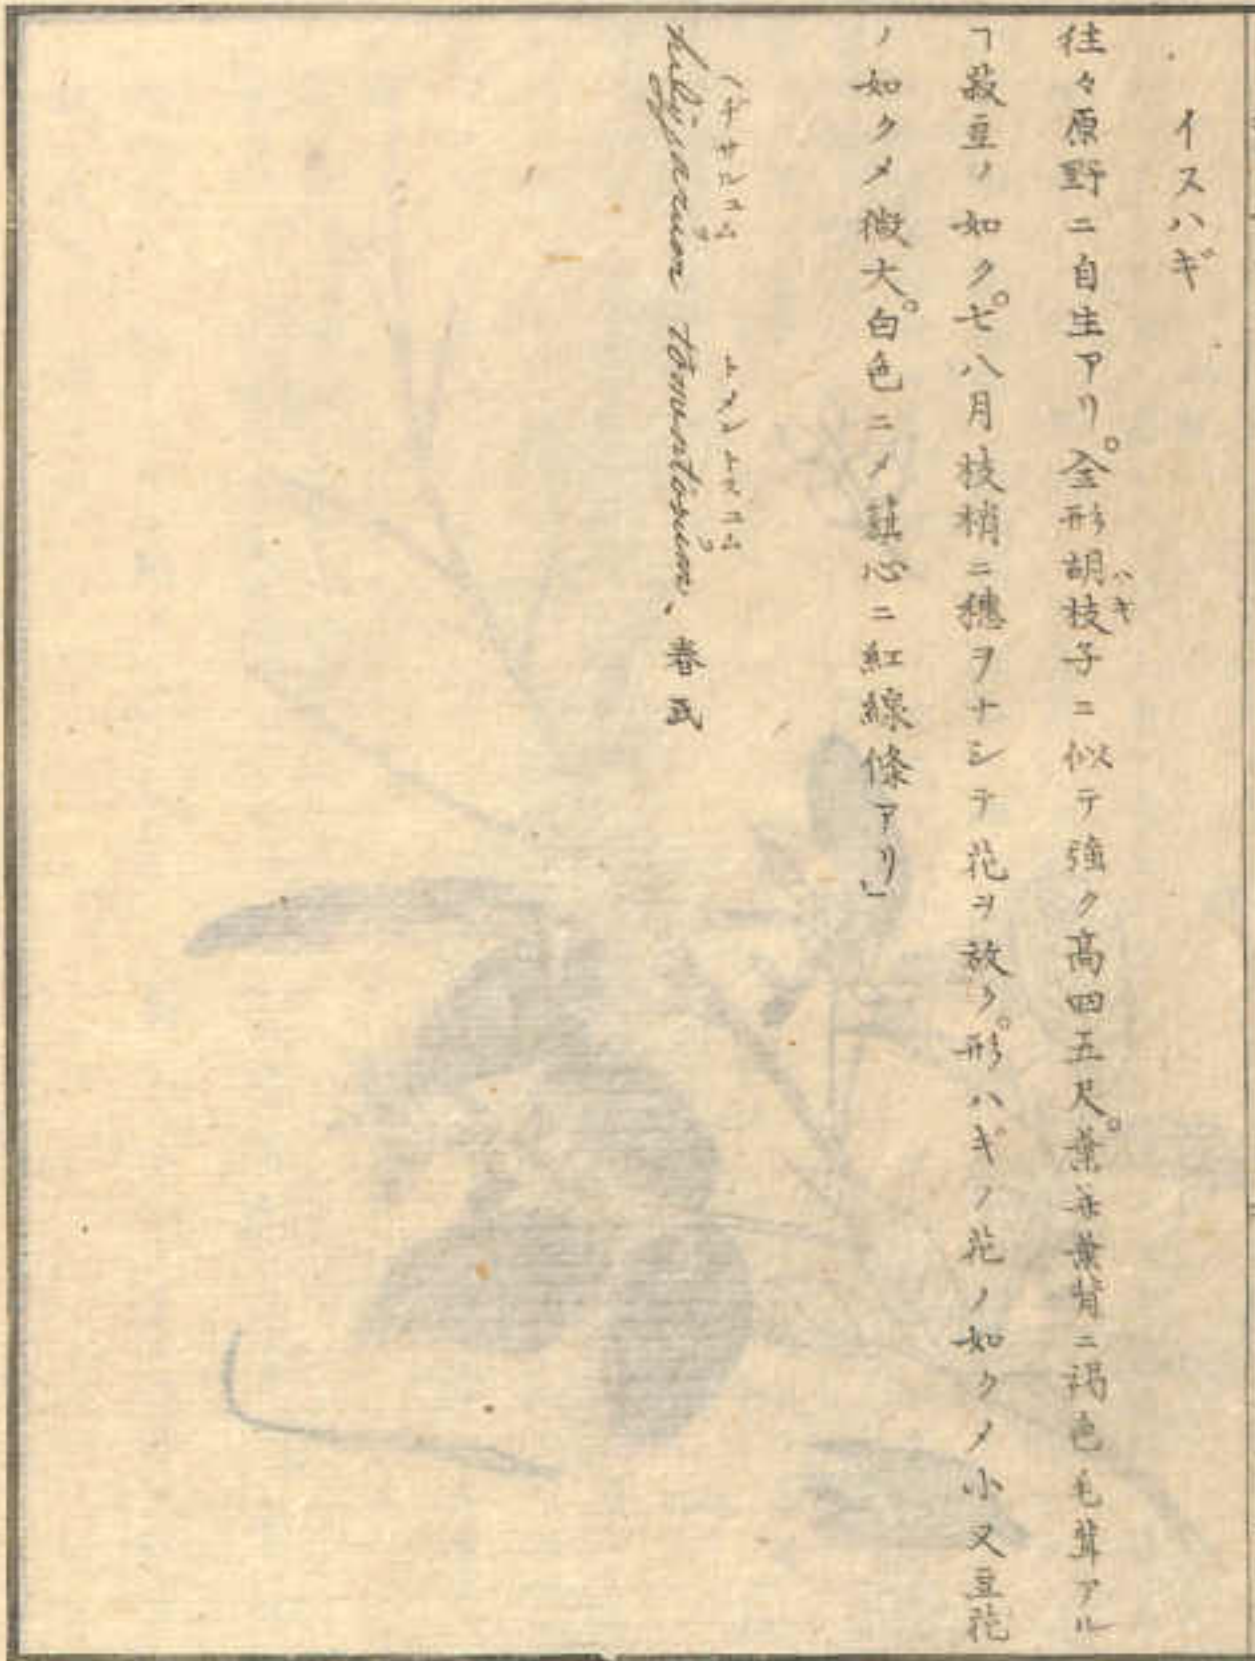 イヌハギ
往々原野ニ自生アリ。全形胡枝子ニ似テ強ク高四五尺。葉並葉背ニ褐色毛茸アル
ハギ
ヿ菽豆ノ如ク。七八月枝梢ニ穗ヲナシテ花ヲ放ク。形ハギノ花ノ如クメ小又豆花
ノ如クメ微大。白色ニメ蘂心ニ紅線條アリ」
ヘヂサルユム トメントスユム
hedijsarum tomentosum, 春氏